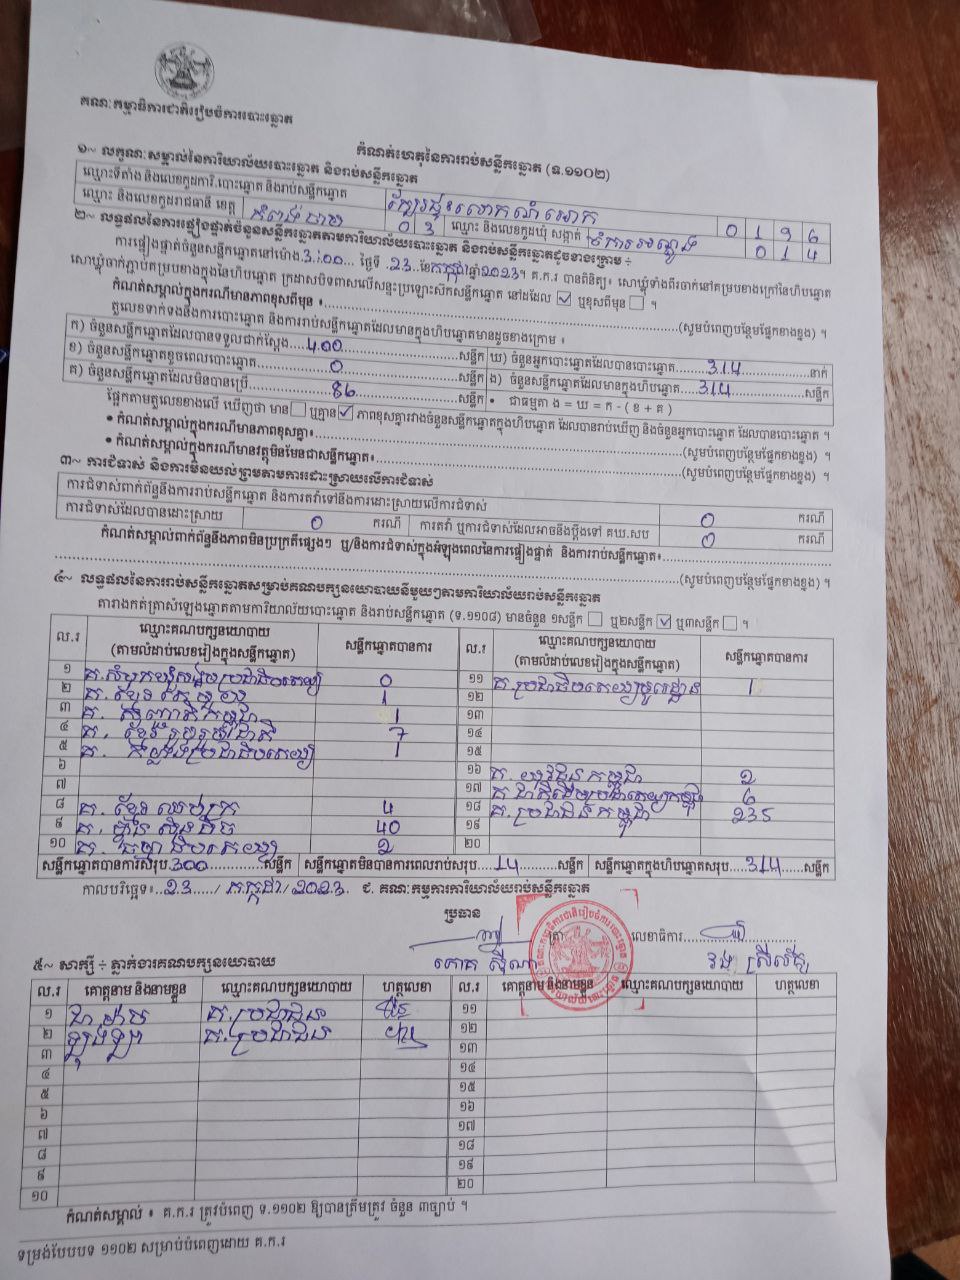 គណៈកម្មាធិការជាតិរៀបចំការបោះឆ្នោត
កំណត់ហេតុនៃការរាប់សន្លឹកឆ្នោត (ទ.១១០២)
១~ លក្ខណៈសម្គាល់នៃការិយាល័យបោះឆ្នោត និងរាប់សន្លឹកឆ្នោត
ឈ្មោះទីតាំង និងលេខកូដការិ.បោះឆ្នោត និងរាប់សន្លឹកឆ្នោត 0 1 9 6
ឈ្មោះ និងលេខកូដរាជធានី ខេត្ត កំពង់ចាម 0 3 ឈ្មោះ និងលេខកូដឃុំ សង្កាត់ 0 1 4
២~ លទ្ធផលនៃការផ្ទៀងផ្ទាត់ចំនួនសន្លឹកឆ្នោតតាមការិយាល័យបោះឆ្នោត និងរាប់សន្លឹកឆ្នោតដូចខាងក្រោម ÷
ការផ្ទៀងផ្ទាត់ចំនួនសន្លឹកឆ្នោតនៅម៉ោង 3:00 ថ្ងៃទី 23 ខែកក្កដា ឆ្នាំ2023។ គ.ក.រ បានពិនិត្យ៖ សោឃ្លុំទាំងពីរចាក់នៅគម្របខាងក្រៅនៃហិបឆ្នោត
សោឃ្លុំចាក់ភ្ជាប់គម្របខាងក្នុងនៃហិបឆ្នោត ក្រដាសបិទពាសលើសន្ទះប្រឡោះសឹកសន្លឹកឆ្នោត នៅដដែល ☑ ឬខុសពីមុន ☐ ។
កំណត់សម្គាល់ក្នុងករណីមានភាពខុសពីមុន ៖ (សូមបំពេញបន្ថែមផ្នែកខាងខ្នង) ។
តួលេខទាក់ទងនឹងការបោះឆ្នោត និងការរាប់សន្លឹកឆ្នោតដែលមានក្នុងហិបឆ្នោតមានដូចខាងក្រោម ៖
ក) ចំនួនសន្លឹកឆ្នោតដែលបានទទួលជាក់ស្តែង 400 សន្លឹក ឃ) ចំនួនអ្នកបោះឆ្នោតដែលបានបោះឆ្នោត 314 នាក់
ខ) ចំនួនសន្លឹកឆ្នោតខូចពេលបោះឆ្នោត 0 សន្លឹក ង) ចំនួនសន្លឹកឆ្នោតដែលមានក្នុងហិបឆ្នោត 314 សន្លឹក
គ) ចំនួនសន្លឹកឆ្នោតដែលមិនបានប្រើ 86 សន្លឹក • ជាធម្មតា ង = ឃ = ក - ( ខ + គ )
ផ្អែកតាមតួលេខខាងលើ ឃើញថា មាន ☐ ឬគ្មាន ☑ ភាពខុសគ្នារវាងចំនួនសន្លឹកឆ្នោតក្នុងហិបឆ្នោត ដែលបានរាប់ឃើញ និងចំនួនអ្នកបោះឆ្នោត ដែលបានបោះឆ្នោត ។
• កំណត់សម្គាល់ក្នុងករណីមានភាពខុសគ្នា៖ (សូមបំពេញបន្ថែមផ្នែកខាងខ្នង) ។
• កំណត់សម្គាល់ក្នុងករណីមានវត្ថុមិនមែនជាសន្លឹកឆ្នោត៖ (សូមបំពេញបន្ថែមផ្នែកខាងខ្នង) ។
៣~ ការជំទាស់ និងការមិនយល់ព្រមតាមការដោះស្រាយលើការជំទាស់
ការជំទាស់ពាក់ព័ន្ធនឹងការរាប់សន្លឹកឆ្នោត និងការតវ៉ាទៅនឹងការដោះស្រាយលើការជំទាស់ 0 ករណី
ការជំទាស់ដែលបានដោះស្រាយ 0 ករណី ការតវ៉ា ឬការជំទាស់ដែលអាចនឹងប្តឹងទៅ គឃ.សប 0 ករណី
កំណត់សម្គាល់ពាក់ព័ន្ធនឹងភាពមិនប្រក្រតីផ្សេងៗ ឬ/និងការជំទាស់ក្នុងអំឡុងពេលនៃការផ្ទៀងផ្ទាត់ និងការរាប់សន្លឹកឆ្នោត៖
(សូមបំពេញបន្ថែមផ្នែកខាងខ្នង) ។
៤~ លទ្ធផលនៃការរាប់សន្លឹកឆ្នោតសម្រាប់គណបក្សនយោបាយនីមួយៗតាមការិយាល័យរាប់សន្លឹកឆ្នោត
តារាងកត់ត្រាសំឡេងឆ្នោតតាមការិយាល័យបោះឆ្នោត និងរាប់សន្លឹកឆ្នោត (ទ.១១០៨) មានចំនួន ១សន្លឹក ☐ ឬ២សន្លឹក ☑ ឬ៣សន្លឹក ☐ ។
ល.រ ឈ្មោះគណបក្សនយោបាយ (តាមលំដាប់លេខរៀងក្នុងសន្លឹកឆ្នោត) សន្លឹកឆ្នោតបានការ ល.រ ឈ្មោះគណបក្សនយោបាយ (តាមលំដាប់លេខរៀងក្នុងសន្លឹកឆ្នោត) សន្លឹកឆ្នោតបានការ
១ គ.សំបុកឃ្មុំសង្គមប្រជាធិបតេយ្យ 0 ១១ គ.ប្រជាធិបតេយ្យមូលដ្ឋាន 1
២ គ. ខ្មែរ 1 ១២
៣ គ. កម្ពុជា 1 ១៣
៤ គ. ខ្មែររួបរួមជាតិ 7 ១៤
៥ គ. កម្លាំងប្រជាធិបតេយ្យ 1 ១៥
៦ ១៦ គ. យុវជនកម្ពុជា 2
៧ ១៧ 6
៨ គ. ខ្មែរឈប់ក្រ 4 ១៨ គ.ប្រជាជនកម្ពុជា 235
៩ គ. ហ្វ៊ុនស៊ិនប៉ិច 40 ១៩
១០ គ. ធម្មាធិបតេយ្យ 2 ២០
សន្លឹកឆ្នោតបានការសរុប 300 សន្លឹក សន្លឹកឆ្នោតមិនបានការពេលរាប់សរុប 14 សន្លឹក សន្លឹកឆ្នោតក្នុងហិបឆ្នោតសរុប 314 សន្លឹក
កាលបរិច្ឆេទ៖ 23 / កក្កដា / 2023 ជ. គណៈកម្មការការិយាល័យរាប់សន្លឹកឆ្នោត
ប្រធាន
ត្រា លេខាធិការ
៥~ សាក្សី ÷ ភ្នាក់ងារគណបក្សនយោបាយ
ល.រ គោត្តនាម និងនាមខ្លួន ឈ្មោះគណបក្សនយោបាយ ហត្ថលេខា ល.រ គោត្តនាម និងនាមខ្លួន ឈ្មោះគណបក្សនយោបាយ ហត្ថលេខា
១ គ.ប្រជាជន ១១
២ គ.ប្រជាជន ១២
៣ ១៣
៤ ១៤
៥ ១៥
៦ ១៦
៧ ១៧
៨ ១៨
៩ ១៩
១០ ២០
កំណត់សម្គាល់ ៖ គ.ក.រ ត្រូវបំពេញ ទ.១១០២ ឱ្យបានត្រឹមត្រូវ ចំនួន ៣ច្បាប់ ។
ទម្រង់បែបបទ ១១០២ សម្រាប់បំពេញដោយ គ.ក.រ